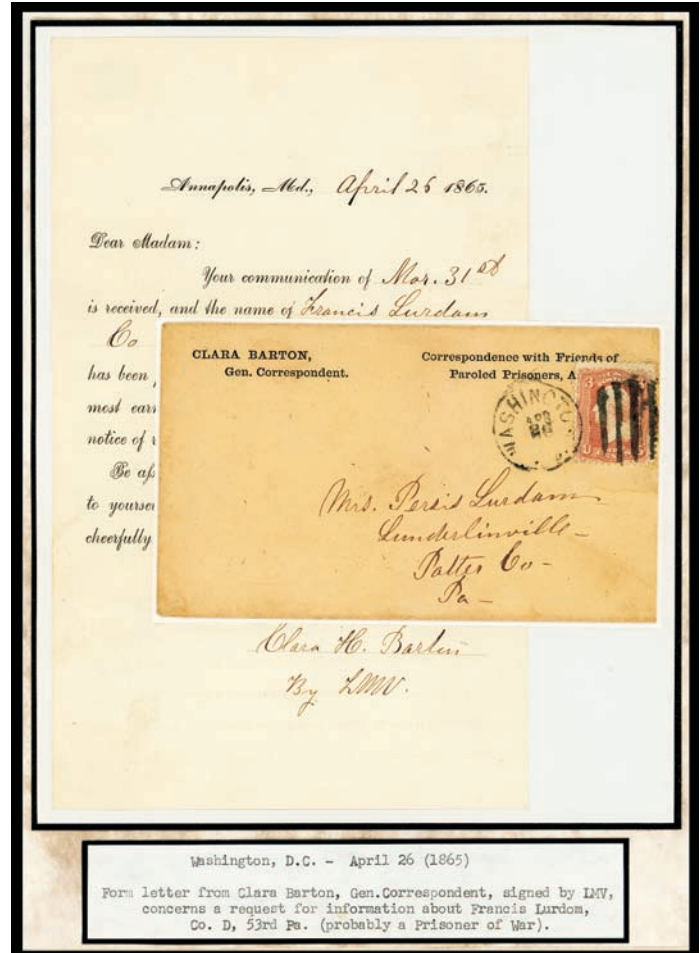 Annapolis, Md., April 25 1865.
Dear Madam:
Your communication of Mar. 31st
is received, and the name of Francis Lurdam
Co
has been
most
notice of
Be
to
cheerfully
CLARA BARTON,
Gen. Correspondent.
Correspondence with Friends of
Paroled Prisoners, A
WASHINGTO
APR
3
Mrs. Persis Lurdam
Sunderlinville-
Potter Co-
Pa-
Clara H. Barton
By LMV.
Washington, D.C. - April 26 (1865)
Form letter from Clara Barton, Gen.Correspondent, signed by LMV,
concerns a request for information about Francis Lurdom,
Co. D, 53rd Pa. (probably a Prisoner of War).